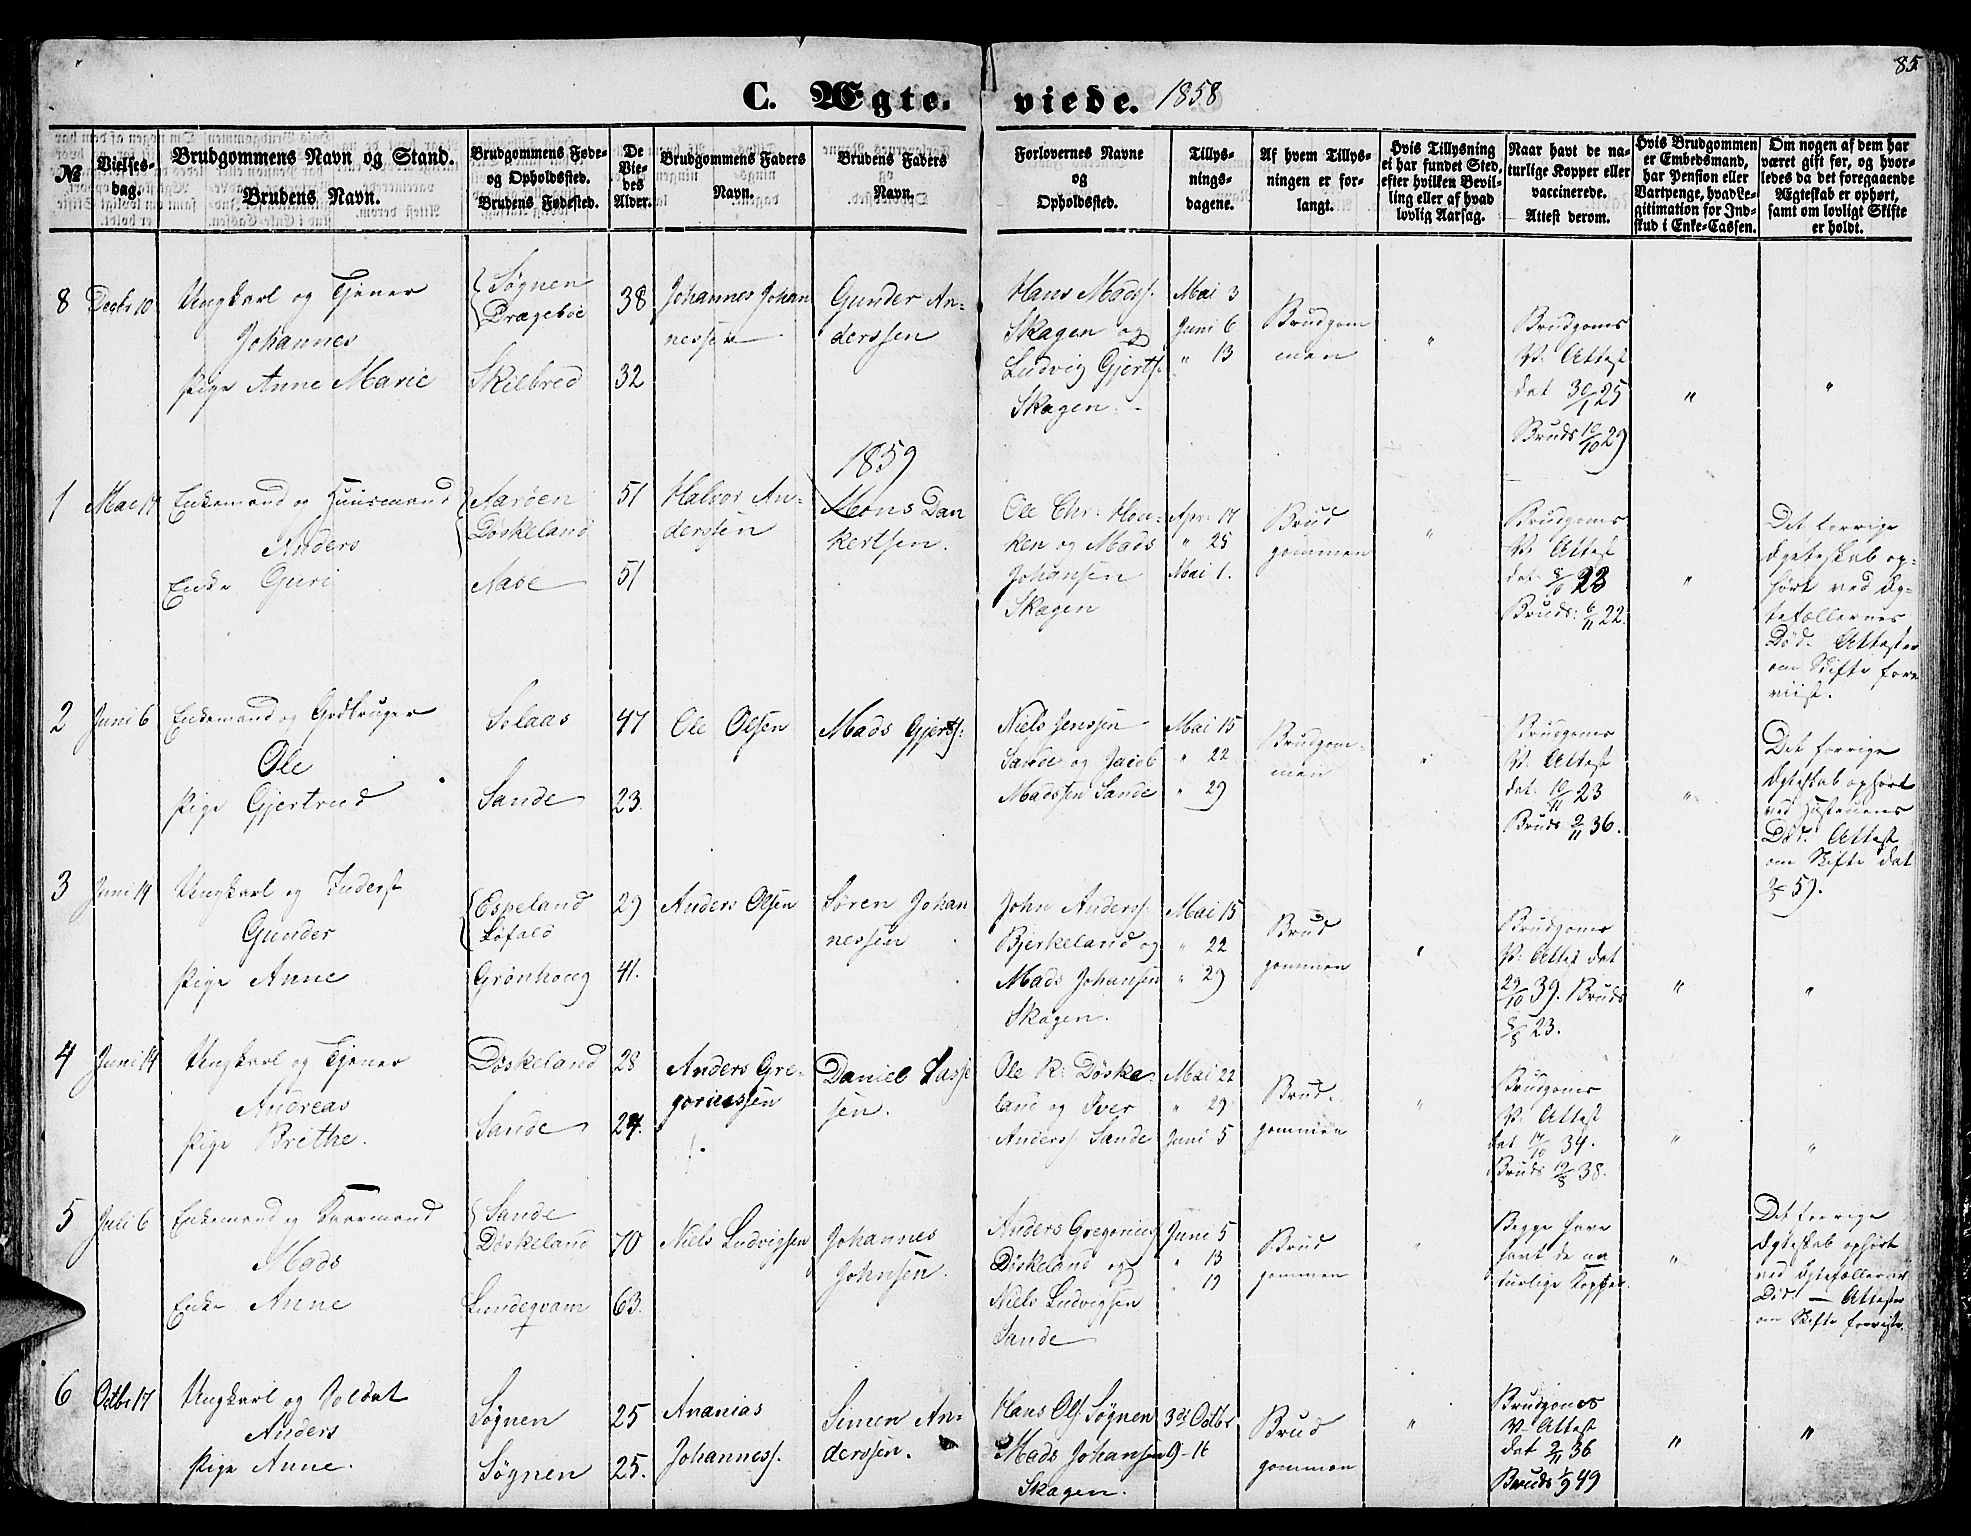 85
C. Ægte- viede. 1858
№
Vielses-
dag.
Brudgommens Navn og Stand.
Brudens Navn.
Brudgommens Føde-
og Opholdssted.
Brudens Fødested.
De
Vie-
des
Alder.
Brudgommens Faders
Navn.
Brudens Faders
Navn.
Forlovernes Navne
og
Opholdssted.
Tillys-
nings-
dagene.
Af hvem Tillys-
ningen er for-
langt.
Hvis Tillysning
ei har fundet Sted,
efter hvilken Bevil-
ling eller af hvad
lovlig Aarsag.
Naar havt de na-
turlige Kopper eller
vaccinerede.
Attest derom.
Hvis Brudgommen
er Embedsmand,
har Pension eller
Vartpenge, hvad Le-
gitimation for Ind-
skud i Enke-Cassen.
Om nogen af dem har
været gift før, og hvor-
ledes da det foregaaende
Ægteskab er ophørt,
samt om lovligt Skifte
er holdt.
8
Decbr 10
Ungkarl og Tjener
Johannes
Pige Anne Marie
Søgnen
Dragebøe
Skilbred
38
32
Johannes Johan
nessen
Gunder An-
derssen
Hans Madss.
Skagen og
Ludvig Gjertss.
Skagen.
Mai 3
Juni 6
" 13
Brudgom
men
"
Brudgoms
V. Attest
dat 30/1 25
Bruds 10/10 29
"
"
1859
1
Mai 17
Enkemand og Huusmand
Anders
Enke Guri
Aarøen
Døskeland
Aase
51
51
Halvor An-
derssen
Mons Dan
kertsen.
Ole Chr: Hou-
ken og Mads
Johansen
Skagen
Apr: 17
" 25
Mai 1.
Brud
gommen
"
Brudgoms
V. Attest
dat: 23
Bruds: 6/11 22.
"
Det forrige
Ægteskab op-
hørt ved Æg-
tefællernes
Død. Attester
om Skifte fore
viist.
2
Juni 6
Enkemand og Gbdbruger
Ole
Pige Gjertrud
Solaas
Sande
47
23.
Ole Olsen
Mads Gjertss:
Niels Jenssen
Sande og Jacob
Madssen Sande
Mai 15
" 22
" 29
Brudgom-
men
"
Brudgoms
V. Attest
dat: 10/11 23
Bruds 2/11 36.
"
Det forrige
Ægteskab ophørt
ved Hustruens
Død. Attest
om Skifte dat
59.
3
Juni 14
Ungkarl og Inderst
Gunder
Pige Anne
Espeland
Løfald
Grønhoug
29
41.
Anders Olsen
Søren Johan
nessen
John Anderss.
Bjerkeland og
Mads Johansen
Skagen.
Mai 15
" 22
" 29
Brud
gommen
"
Brudgoms
V: Attest dat
29/10 39. Bruds
23.
"
"
4
Juni 14
Ungkarl og Tjener
Andreas
Pige Brithe.
Døskeland
Sande
28
24.
Anders Gre-
goriussen
Daniel Lasse
sen.
Ole R: Døske-
land og Iver
Anderss. Sande
Mai 22
" 29
Juni 5
Brud-
gommen
"
Brudgoms
V: Attest
dat 17/10 34.
Bruds 38.
"
"
5
Juli 6
Enkemand og Kaarmand
Mads
Enke Anne
Sande
Døskeland
Lundeqvam
70
63.
Niels Ludvigsen
Johannes
Johnsen.
Anders Gregorius
Døskeland og
Niels Ludvigsen
Sande
Juni 5
" 13
" 19
Brud
gommen
"
Begge have
havt de na
turlige Kopper.
"
Det forrige
Ægteskab ophørt
ved Ægtefællernes
Død. — Attester
om Skifte foreviste.
6
Octbr 17
Ungkarl og Soldat
Anders
Pige Anne.
Søgnen
Søgnen
25
25.
Ananias
Johanness.
Simen An-
derssen.
Hans Ols: Søgnen
Mads Johansen
Skagen.
3de Octbr
9-16
Brud
gommen
"
Brudgoms
V. Attest
dat 2/11 36
Bruds 1/9 49
"
"